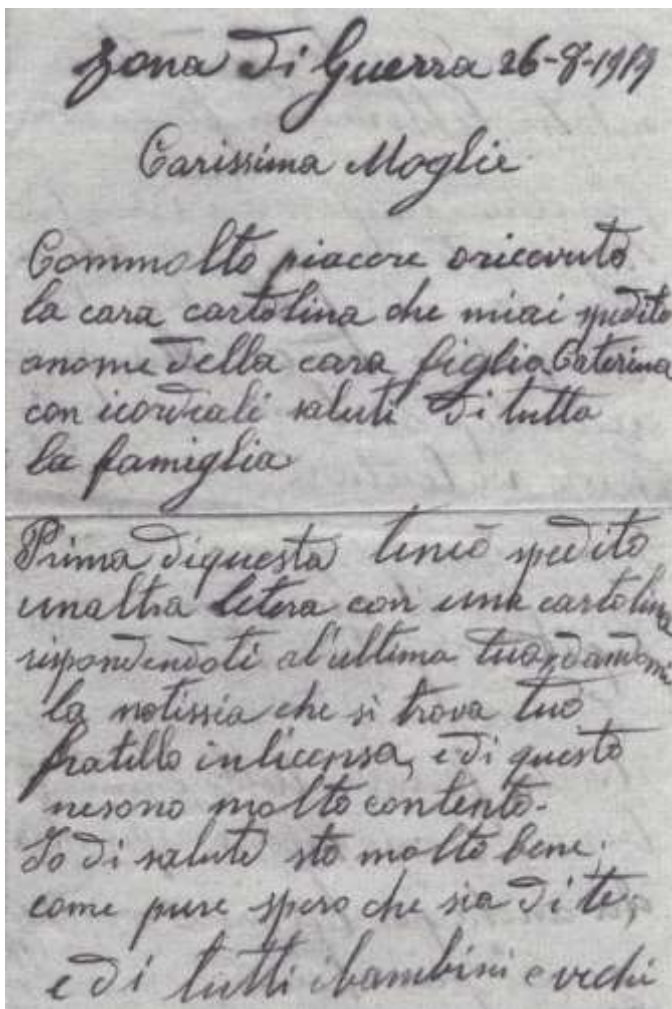 Zona di Guerra 26-8-1917
Carissima Moglie
Commolto piacere oricevuto
la cara cartolina che miai spedito
anome della cara figlia Caterina
con icordiali saluti di tutta
la famiglia
Prima diquesta tenio spedito
unaltra letera con una cartolina
rispondendoti al'ultima tua, dandomi
la notissia che si trova tuo
fratello inlicensa, e di questo
nesono molto contento.
Io di salute sto molto bene,
come pure spero che sia di te,
e di tutti ibambini e vechi